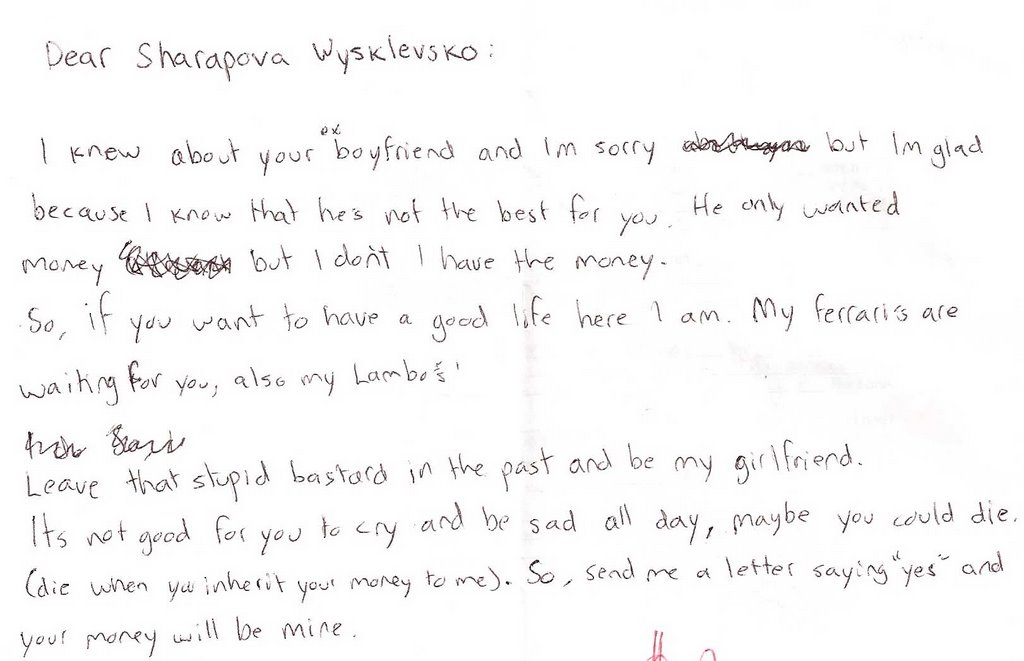 Dear Sharapova Wysklevsko:
I knew about your ex boyfriend and Im sorry but Im glad
because I know that he's not the best for you. He only wanted
money but I don't I have the money.
So, if you want to have a good life here I am. My ferrari's are
waiting for you, also my Lambo's'
Leave that stupid bastard in the past and be my girlfriend.
Its not good for you to cry and be sad all day, maybe you could die.
(die when you inherit your money to me). So, send me a letter saying "yes" and
your money will be mine.